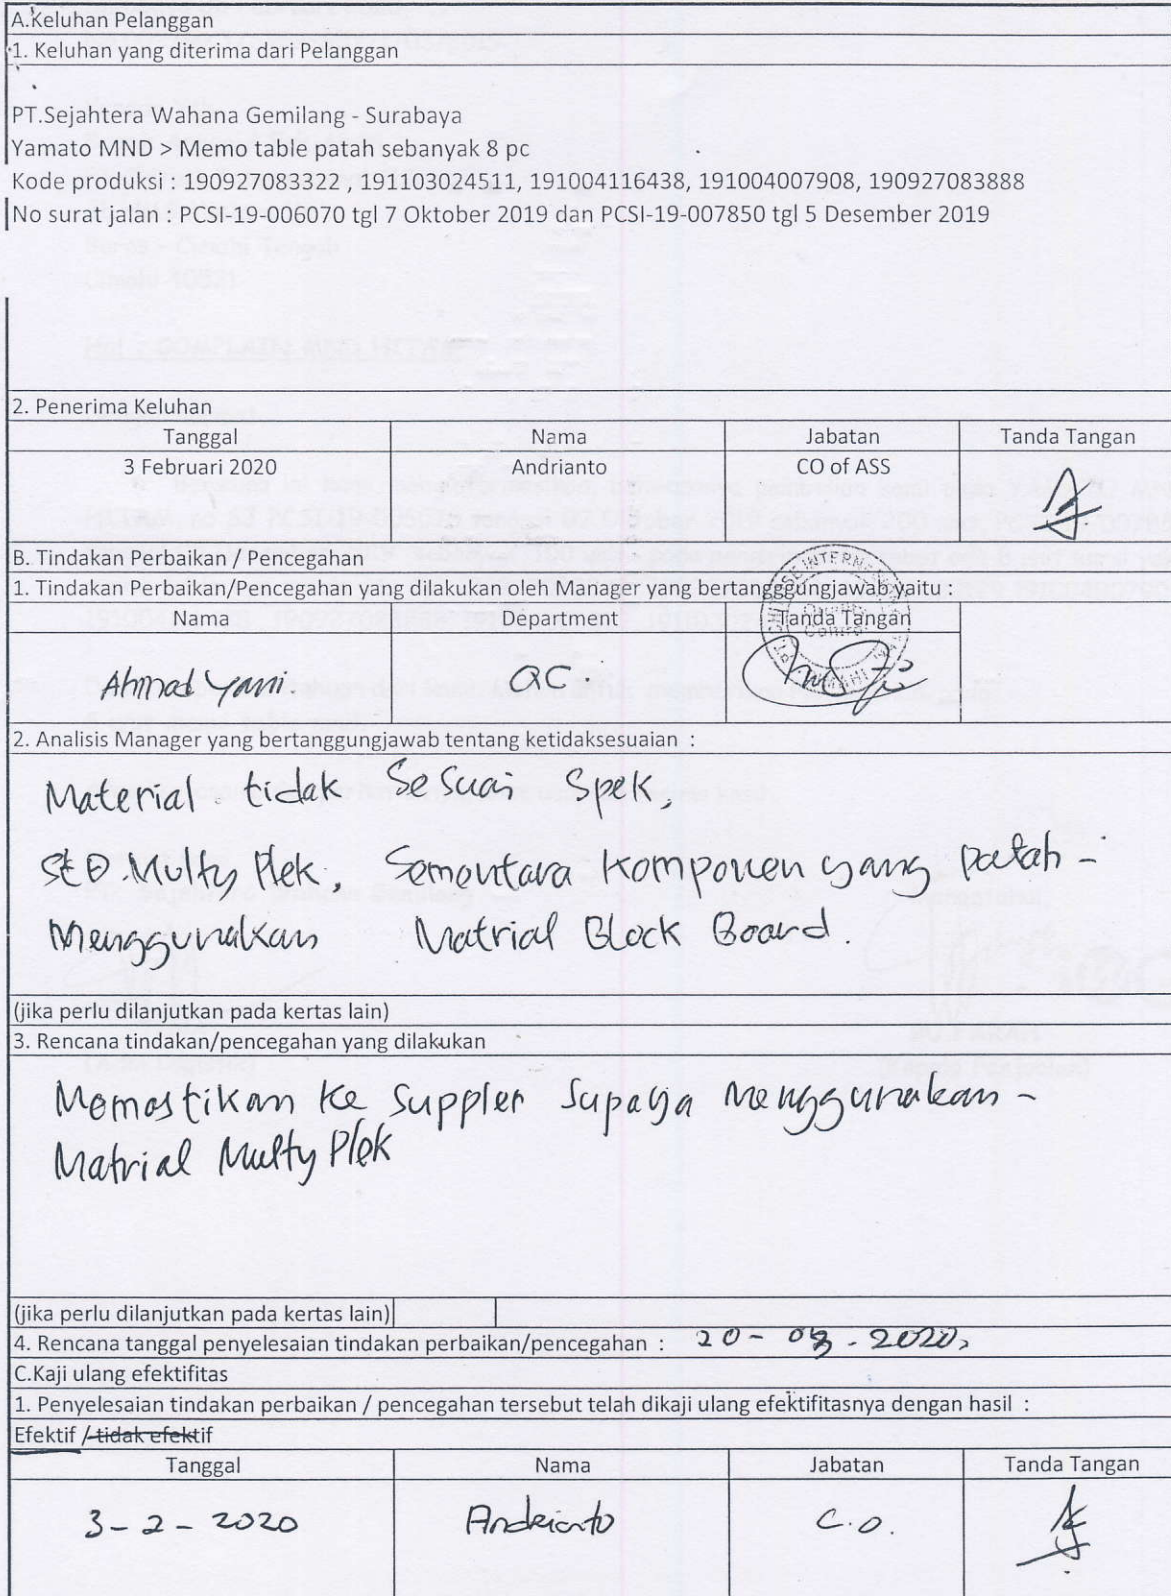 A.Keluhan Pelanggan
1. Keluhan yang diterima dari Pelanggan
PT.Sejahtera Wahana Gemilang - Surabaya
Yamato MND > Memo table patah sebanyak 8 pc
Kode produksi : 190927083322 , 191103024511, 191004116438, 191004007908, 190927083888
No surat jalan : PCSI-19-006070 tgl 7 Oktober 2019 dan PCSI-19-007850 tgl 5 Desember 2019
2. Penerima Keluhan
Tanggal Nama Jabatan Tanda Tangan
3 Februari 2020 Andrianto CO of ASS
B. Tindakan Perbaikan / Pencegahan
1. Tindakan Perbaikan/Pencegahan yang dilakukan oleh Manager yang bertangggungjawab yaitu :
Nama Department Tanda Tangan
Ahmad Yani QC.
2. Analisis Manager yang bertanggungjawab tentang ketidaksesuaian :
Material tidak Sesuai Spek,
STD. Multy Plek, Sementara Komponen yang patah -
Menggunakan Matrial Block Board.
(jika perlu dilanjutkan pada kertas lain)
3. Rencana tindakan/pencegahan yang dilakukan
Memastikan Ke Suppler Supaya Menggunakan -
Matrial Multy Plek
(jika perlu dilanjutkan pada kertas lain)
4. Rencana tanggal penyelesaian tindakan perbaikan/pencegahan : 20 - 03 - 2020,
C.Kaji ulang efektifitas
1. Penyelesaian tindakan perbaikan / pencegahan tersebut telah dikaji ulang efektifitasnya dengan hasil :
Efektif / tidak efektif
Tanggal Nama Jabatan Tanda Tangan
3 - 2 - 2020 Andrianto C.O.